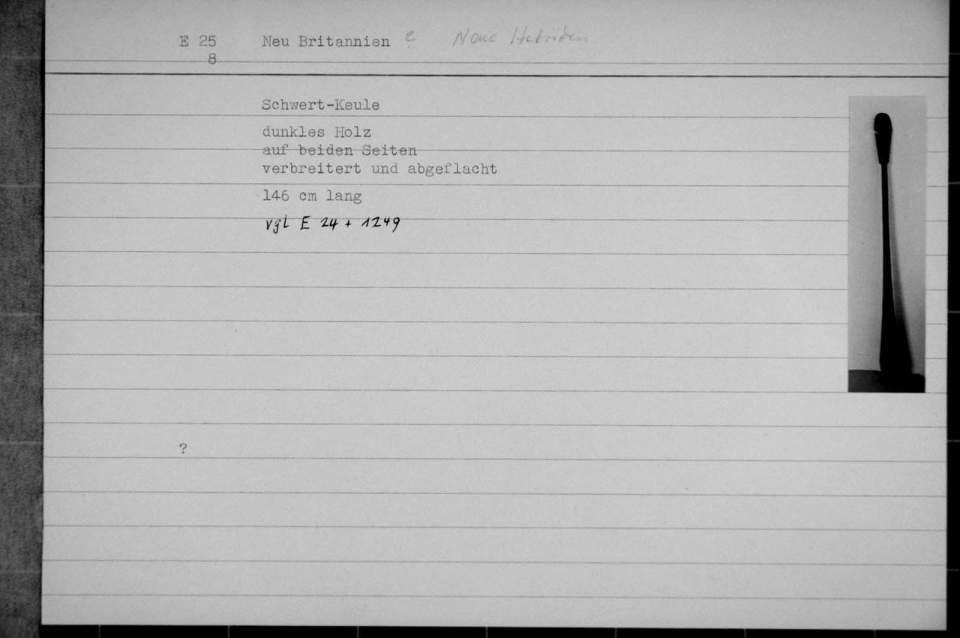 E 25 Neu Britannien ? Neue Hebriden
8
Schwert-Keule
dunkles Holz
auf beiden Seiten
verbreitert und abgeflacht
146 cm lang
vgl E 24 + 1249
?